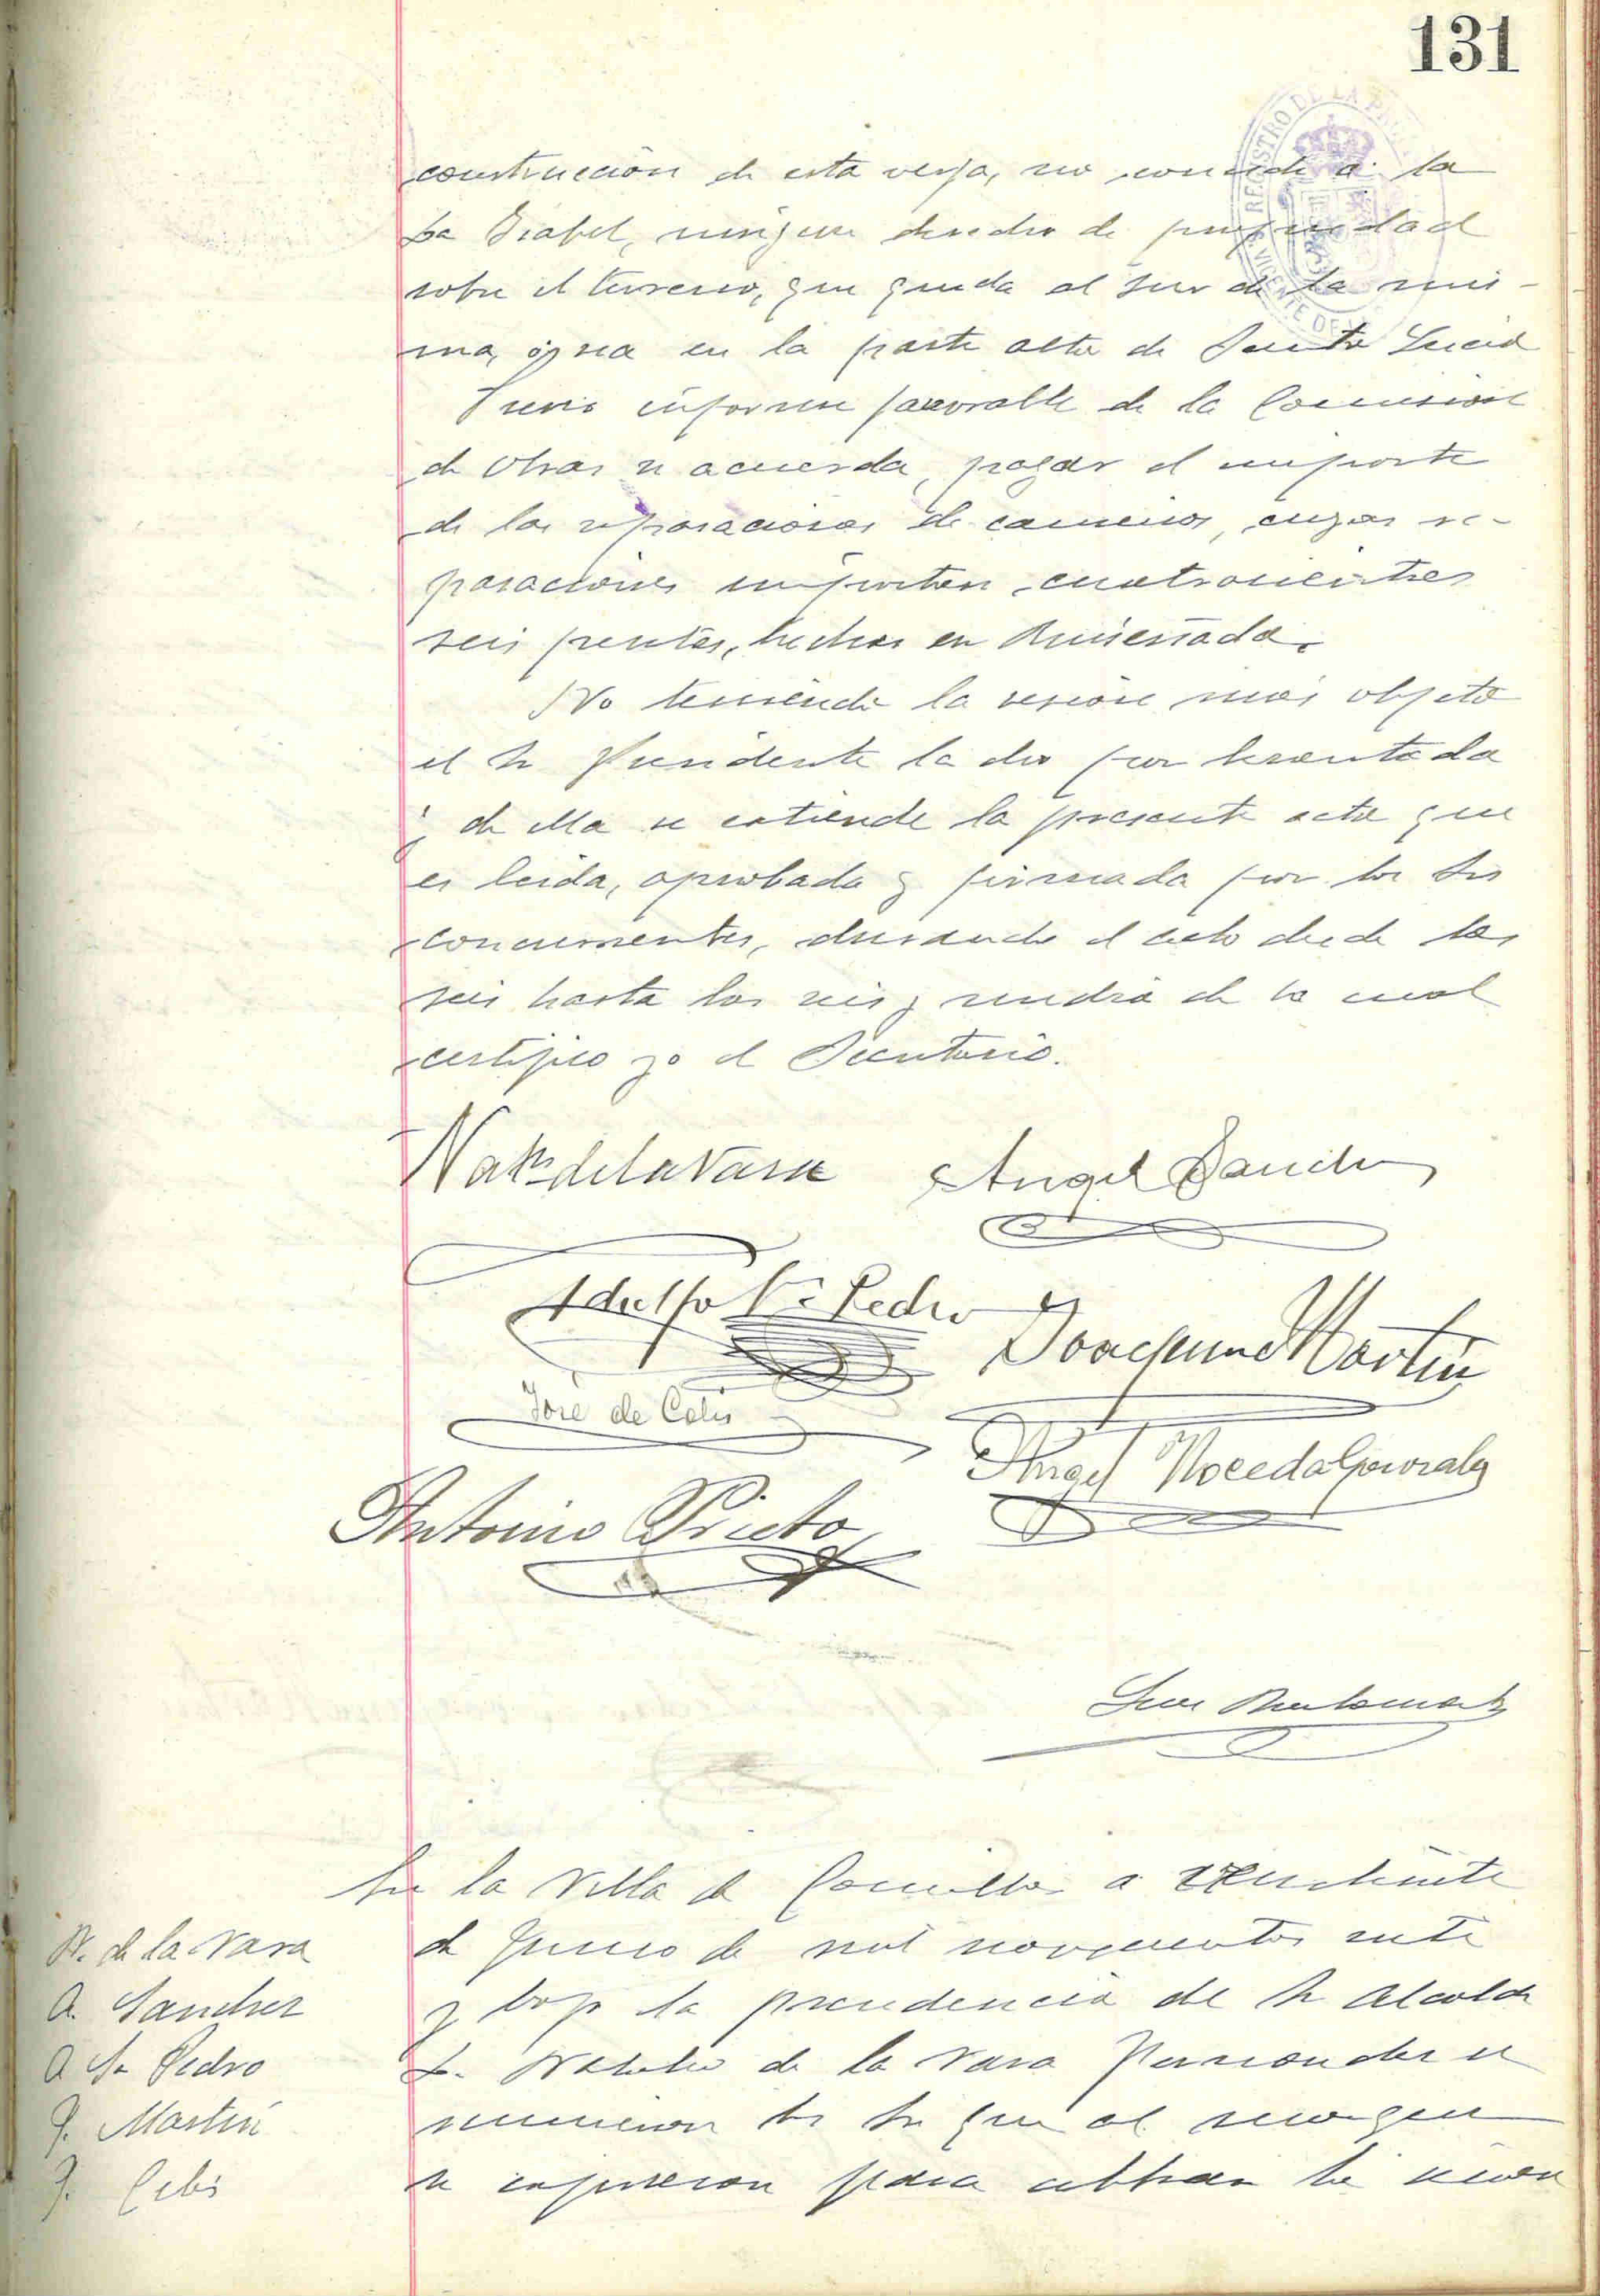 131
REGISTRO DE LA P
S. VICENTE DE
construcción de esta verja, no concede a la
Sa Isabel, ningun derecho de propiedad
sobre el terreno, que queda al sur de la mis-
ma, o sea en la parte alta de Santa Lucia
Previo informe favorable de la Comision
de Obras se acuerda, pagar el importe
de las reparaciones de caminos, cuyas re-
paraciones importan cuatrocientas
seis pesetas, hechas en Ruiseñada.
No teniendo la sesión más objeto
el Sr Presidente la dio por levantada
y de ella se extiende la presente acta que
es leida, aprobada y firmada por los Srs
concurrentes, durando el acto desde las
seis hasta las seis y media de lo cual
certifico yo el Secretario.
Nato de la Vara Angel Sanchez
Adolfo Sn Pedro Joaquin Martin
José de Celis
Angel Noceda Gonzalez
Antonio Prieto
En la Villa de Comillas a
de Junio de mil novecientos siete
y bajo la presidencia del Sr Alcalde
D. Natalio de la Vara Fernandez se
reunieron los Srs que al margen
se expresan para celebrar la sesion
N. de la Vara
A. Sanchez
A Sn Pedro
J. Martin
J. Celis